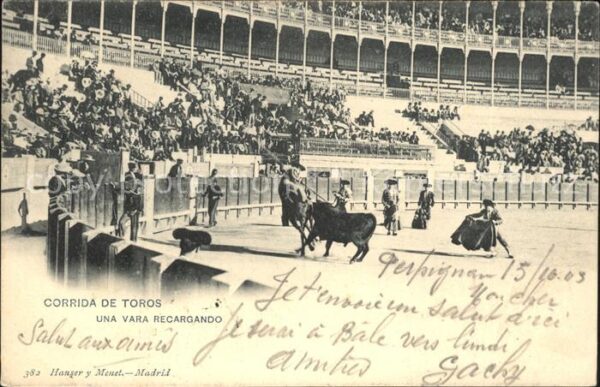 CORRIDA DE TOROS
UNA VARA RECARGANDO
Perpignan 15/10 03
Mon cher
Je t'envoie un salut d'ici
Je serai à Bâle vers lundi
Salut aux amis
Amitiés
382 Hauser y Menet.—Madrid